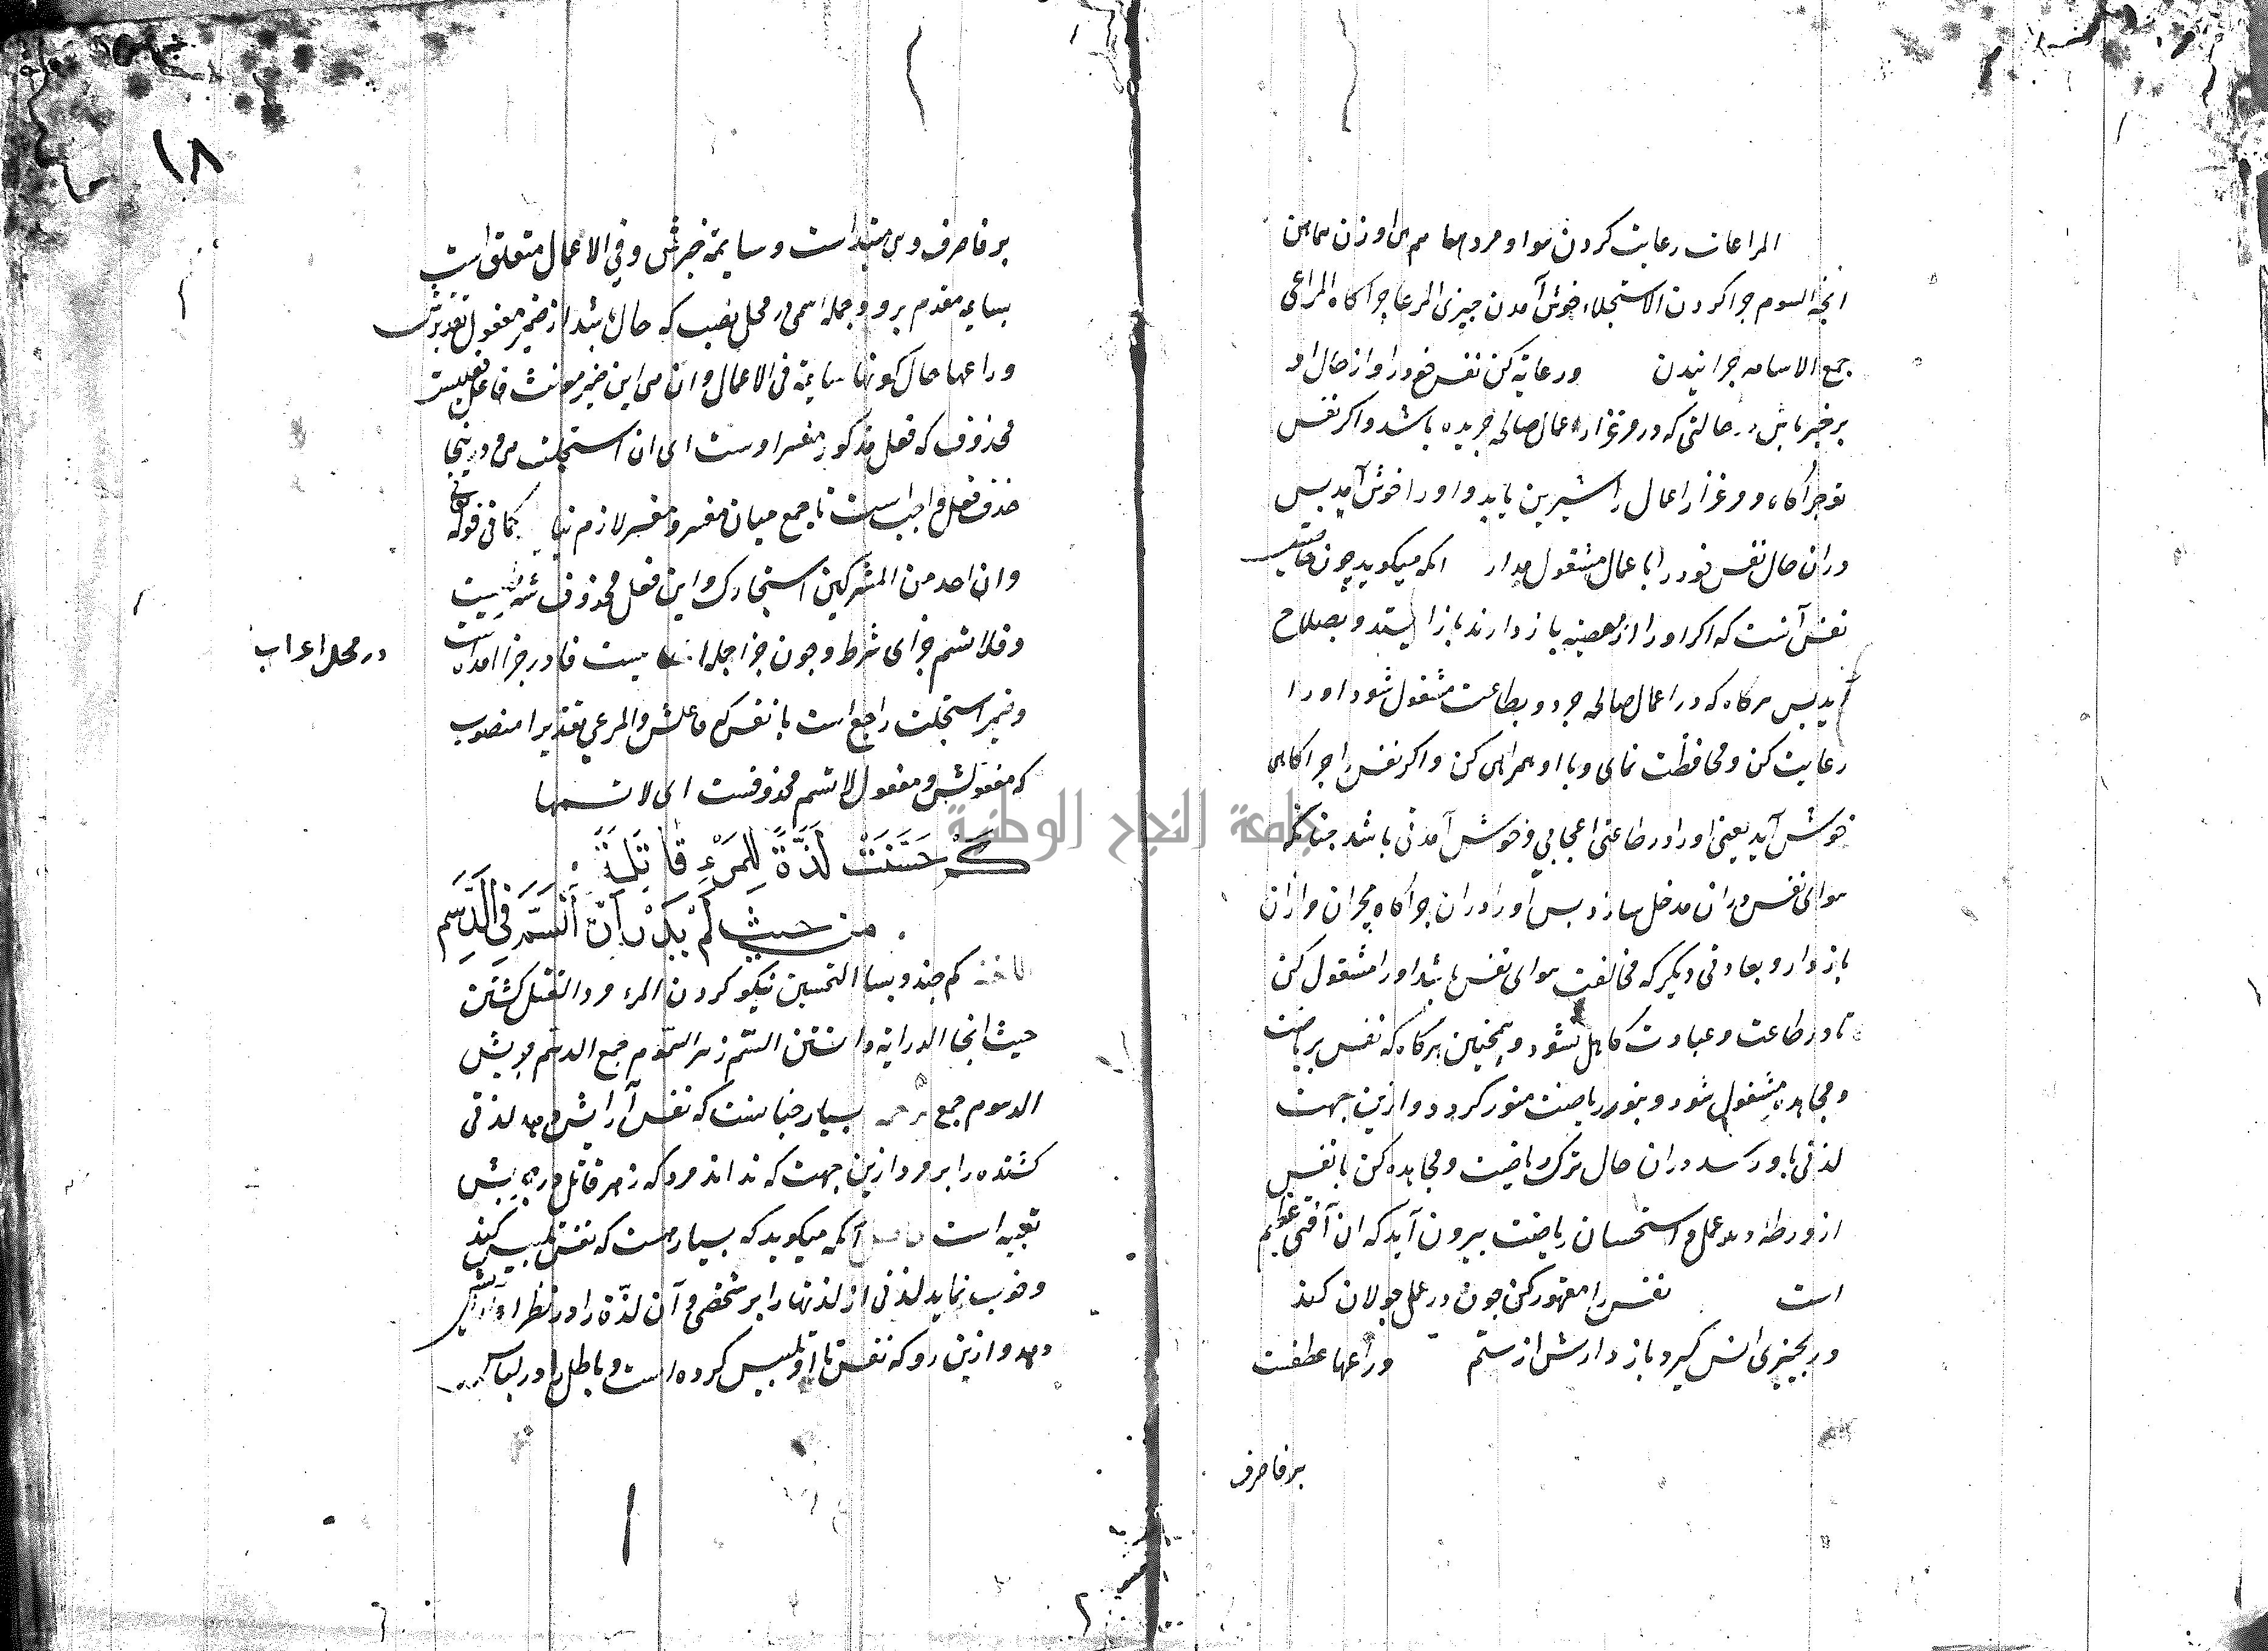 المراعات رعایت کردن سوا و مرد
السوم چرا کردن الاستحلاء خوش آمدن چیزی المرعا چراکاه المراعی
جمع الاسامه چرانیدن ورعایة کن نفس خود را و از حال او
برخبر باش در حالتی که در مرغزار اعمال صالحه چریده باشد و اکر نفس
تو چراکاه و مرغزار اعمال را شیرین یابد و او را خوش آید پس
در ان حال نفس خود را با عمال مشغول مدار انکه میکوید چون
نفس آنست که اکر او را از معصیه باز دارند باز ایستد و بصلاح
آید پس هرکاه که در اعمال صالحه چرد و بطاعت مشغول شود او را
رعایت کن و محافظت نمای و با او همراهی کن و اکر نفس را چراکاهی
خوش آید یعنی او را در طاعتی اعجابی و خوش آمدنی باشد چنانکه
هوای نفس در ان مدخل سازد پس او را در ان چراکاه مچران و از ان
باز دار و بعادتی دیکر که مخالفت هوای نفس باشد او را مشغول کن
تا در طاعت و عبادت کاهل نشود و همچنین هرکاه که نفس بریاضت
و مجاهده مشغول شود و بنور ریاضت منور کردد و ازین جهت
لذتی باو رسد در ان حال ترک ریاضت و مجاهده کن با نفس
از ورطه دید عمل و استحسان ریاضت بیرون آید که ان آفتی عظیم
است نفس را مقهور کن چون در عمل جولان کند
ور بچیزی انس کیرد باز دارش از ستم وراعها عطفست
بر فاصرف
بر فاصرف وهی مبتداست وسایمة خبرش وفی الاعمال متعلق است
بسایمه مقدم برو و جمله اسمی در محل نصب که حال باشد از ضمیر مفعول تقدیرش
وراعها حال کونها سایمة فی الاعمال وان هی این ضمیر مونث فاعل فعلیست
محذوف که فعل مذکور مفسر اوست ای ان استحلت هی و درینجا
حذف فعل واجب است تا جمع میان مفسر و مفسر لازم نیاید کما فی قوله تعالی
وان احد من المشرکین استجارک و این فعل محذوف شرطیست
و فلا تسم جزای شرط و چون جزا جمله انشاییست فا در جزا آمده است
در محل اعراب
وضمیر استحلت راجع است با نفس که فاعلش والمرعی تقدیرا منصوب
که مفعولش و مفعول لا تسم محذوفست ای لا تسمها
كَمْ حَسَّنَتْ لَذَّةً لِلمَرْءِ قَاتِلَةً
مِن حَيثُ لَمْ يَدْرِ اَنَّ السَّمَّ فِي الدَّسَمِ
کم چند و بسا التحسین نیکو کردن المرء مرد القتل کشتن
حیث انجا الدرایة دانستن السّم زهر السّموم جمع الدسم چربش
الدسوم جمع بسیار چنانست که نفس آرایش دهد لذتی
کشنده را بر مرد ازین جهت که نداند مرد که زهر قاتل در چربش
تعبیه است انکه میکوید که بسیار هست که نفس تلبیس کند
و خوب نماید لذتی از لذتها را بر شخصی و آن لذّة را در نظر او آرایش
دهد و ازین رو که نفس با او تلبیس کرده است و باطل را در لباس
١٨
جامعة النجاح الوطنية